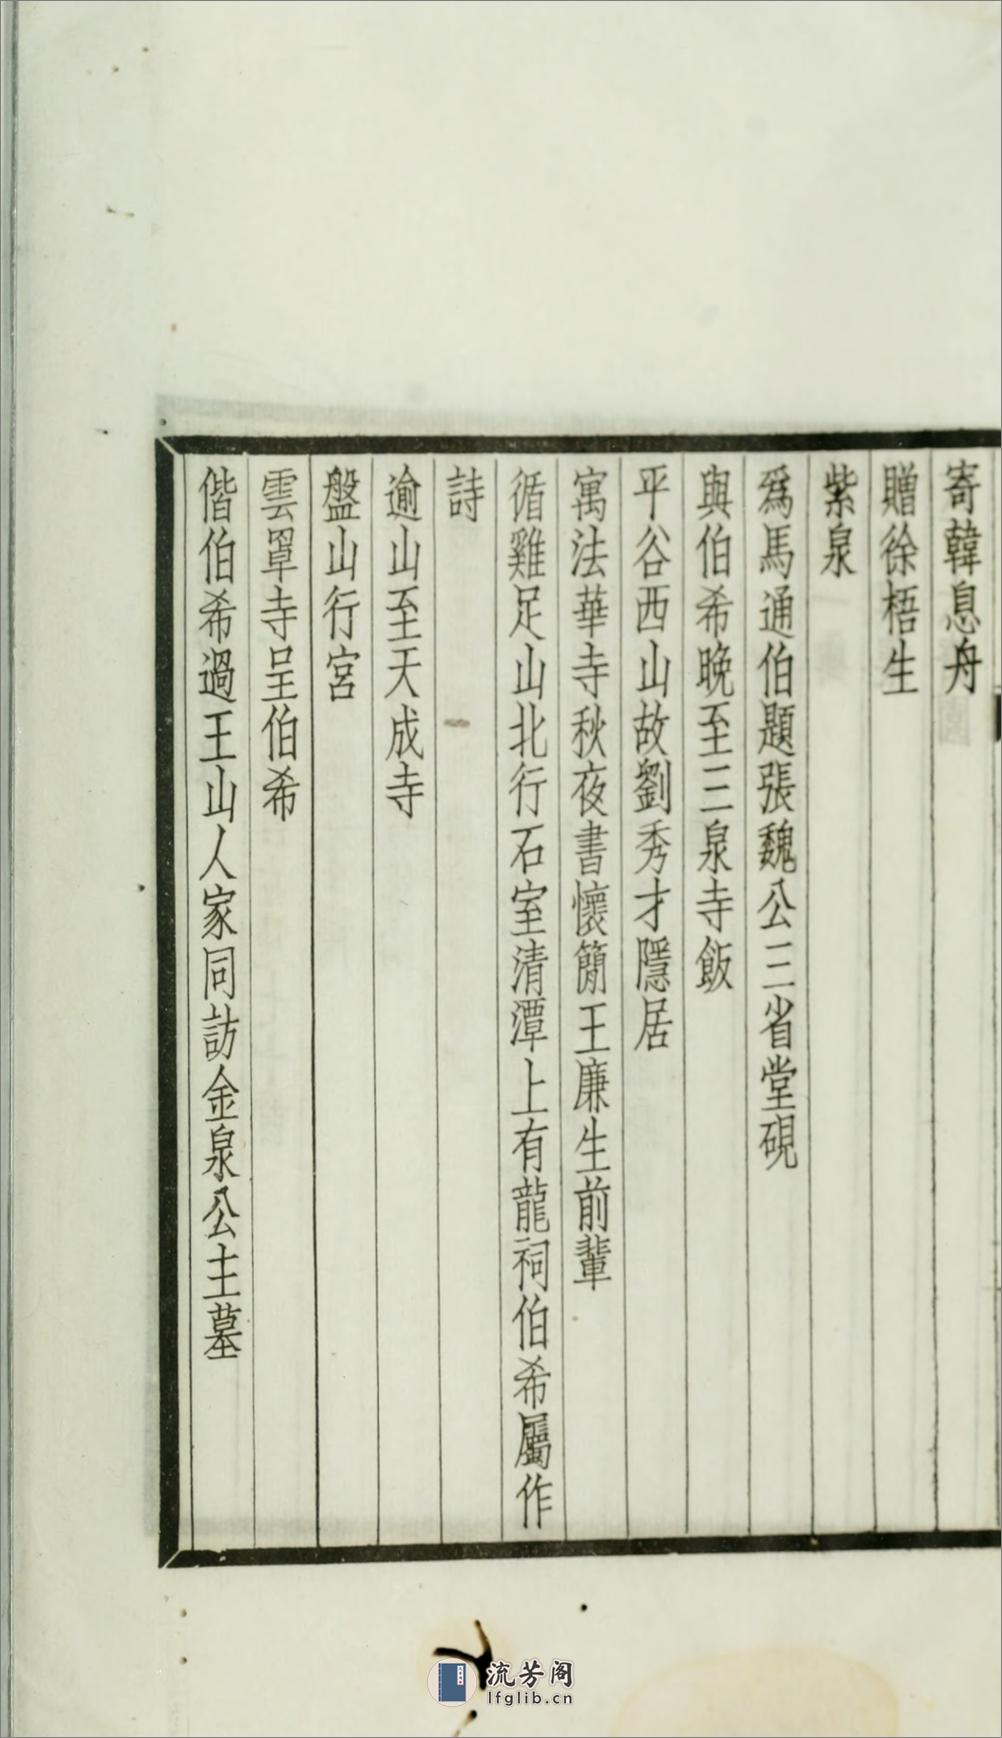 寄韓息舟
贈徐梧生
紫泉
爲馬通伯題張魏公三省堂硯
與伯希晚至三泉寺飯
平谷西山故劉秀才隱居
寓法華寺秋夜書懷簡王廉生前輩
循雞足山北行石室清潭上有龍祠伯希屬作
詩
逾山至天成寺
盤山行宮
雲罩寺呈伯希
偕伯希過王山人家同訪金泉公主墓
流芳阁
lfglib.cn